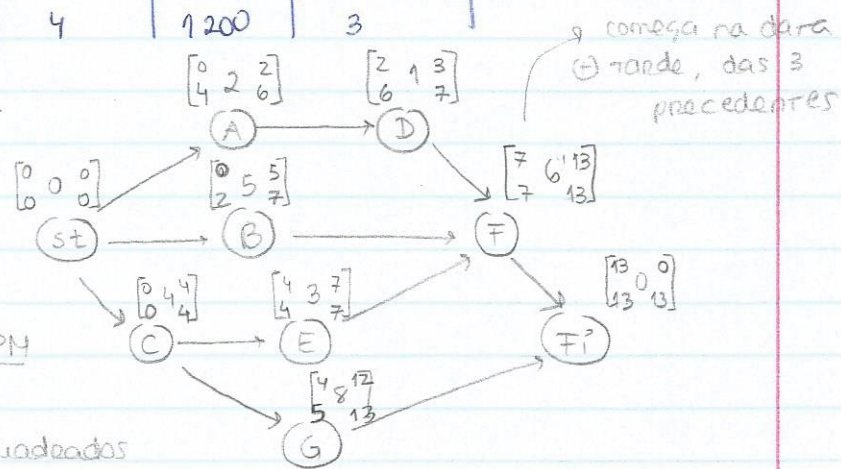 4 | 1200 | 3
começa na data
(+) tarde, das 3
precedentes
[0 2 2
4 6]
[2 1 3
6 7]
A
D
[0 0 0
0 0]
[0 5 5
2 7]
[7 6 13
7 13]
st
B
F
[0 4 4
0 4]
[4 3 7
4 7]
[13 0 0
13 13]
C
E
Fi
[4 8 12
5 13]
G